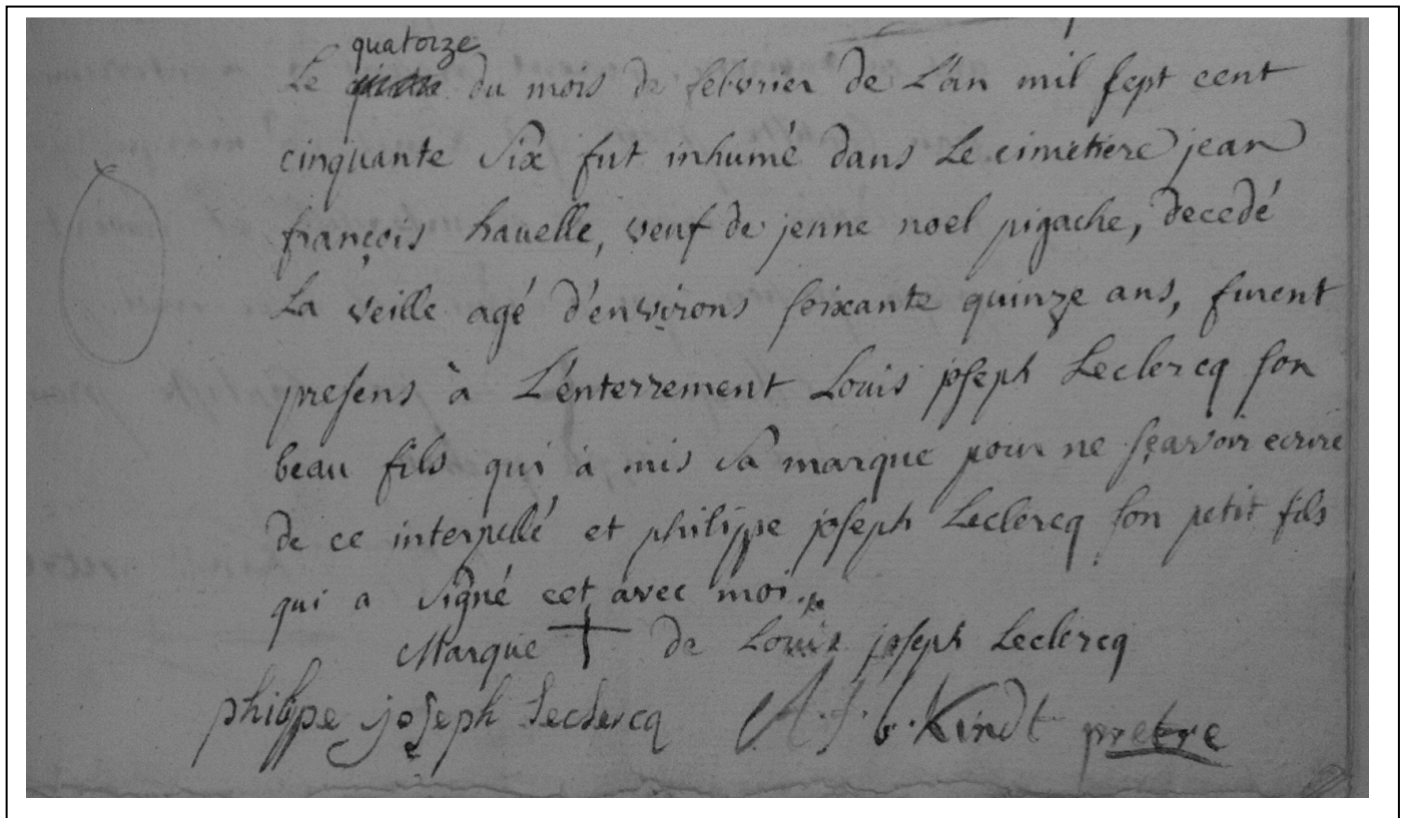 quatorze
Le du mois de febvrier de L'an mil sept cent
cinquante Six fut inhumé dans Le cimetiere jean
françois havelle, veuf de jenne noel pigache, decedé
La veille agé d'environs seixante quinze ans, furent
presens à L'enterrement Louis joseph Leclercq son
beau fils qui à mis Sa marque pour ne sçavoir ecrire
de ce interpellé et philippe joseph Leclercq son petit fils
qui a Signé cet avec moi.
Marque de Louis joseph Leclercq
philippe joseph Leclercq A. J. b. Kindt pretre